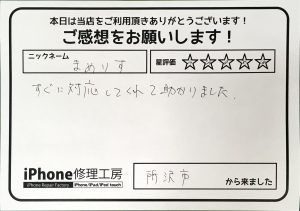 本日は当店をご利用頂きありがとうございます！
ご感想をお願いします！
ニックネーム
まめりす
星評価
☆☆☆☆☆
すぐに対応してくれて助かりました。
iPhone修理工房
iPhone Repair Factory
iPhone/iPad/iPod touch
所沢市
から来ました